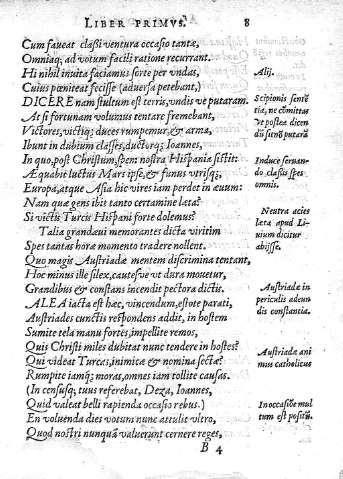 LIBER PRIMVS. 8
Cum faueat classi ventura occasio tantæ,
Omniaq; ad votum facili ratione recurrant.
Hi nihil inuita faciamus sorte per vndas,
Alij.
Cuius pœniteat fecisse (aduersa petebant,)
DICERE nam stultum est terris, vndis vt putaram.
Scipionis sentẽ
tia, ne comittas
vt postea dicen
dũ sit nõ putarã
At si fortunam volumus tentare fremebant,
Victores, victiq; duces rumpemur, & arma,
Ibunt in dubium classes, ductorq; Ioannes,
In quo, post Christum, spem nostra Hispania sistit:
Induce seruan-
do classis spes
omnis.
Aequabit luctus Mars ipse, & funus vtrisq;,
Europa, atque Asia hic vires iam perdet in æuum:
Nam quæ gens ibit tanto certamine læta?
Neutra acies
læta apud Li-
uium dicitur
abijsse.
Si victis Turcis Hispani forte dolemus?
Talia grandæui memorantes dicta viritim
Spes tantas hora momento tradere nollent.
Quo magis Austriadæ mentem discrimina tentant,
Hoc minus ille silex, cautesve vt dura mouetur,
Grandibus & constans incendit pectora dictis.
Austriadæ in
periculis adeun
dis constantia.
ALEA iacta est hæc, vincendum, estote parati,
Austriades cunctis respondens addit, in hostem
Sumite tela manu fortes, impellite remos,
Quis Christi miles dubitat nunc tendere in hostes?
Qui videat Turcas, inimicæ & nomina sectæ?
Austriadæ ani
mus catholicus
Rumpite iamq; moras, omnes iam tollite causas.
(In censusq; tuus referebat, Deza, Ioannes,
Quid valeat belli rapienda occasio rebus.)
In occasiõe mul
tum est positũ.
En voluenda dies votum nunc attulit vltro,
Quod nostri nunquã valuerunt cernere reges,
B 4